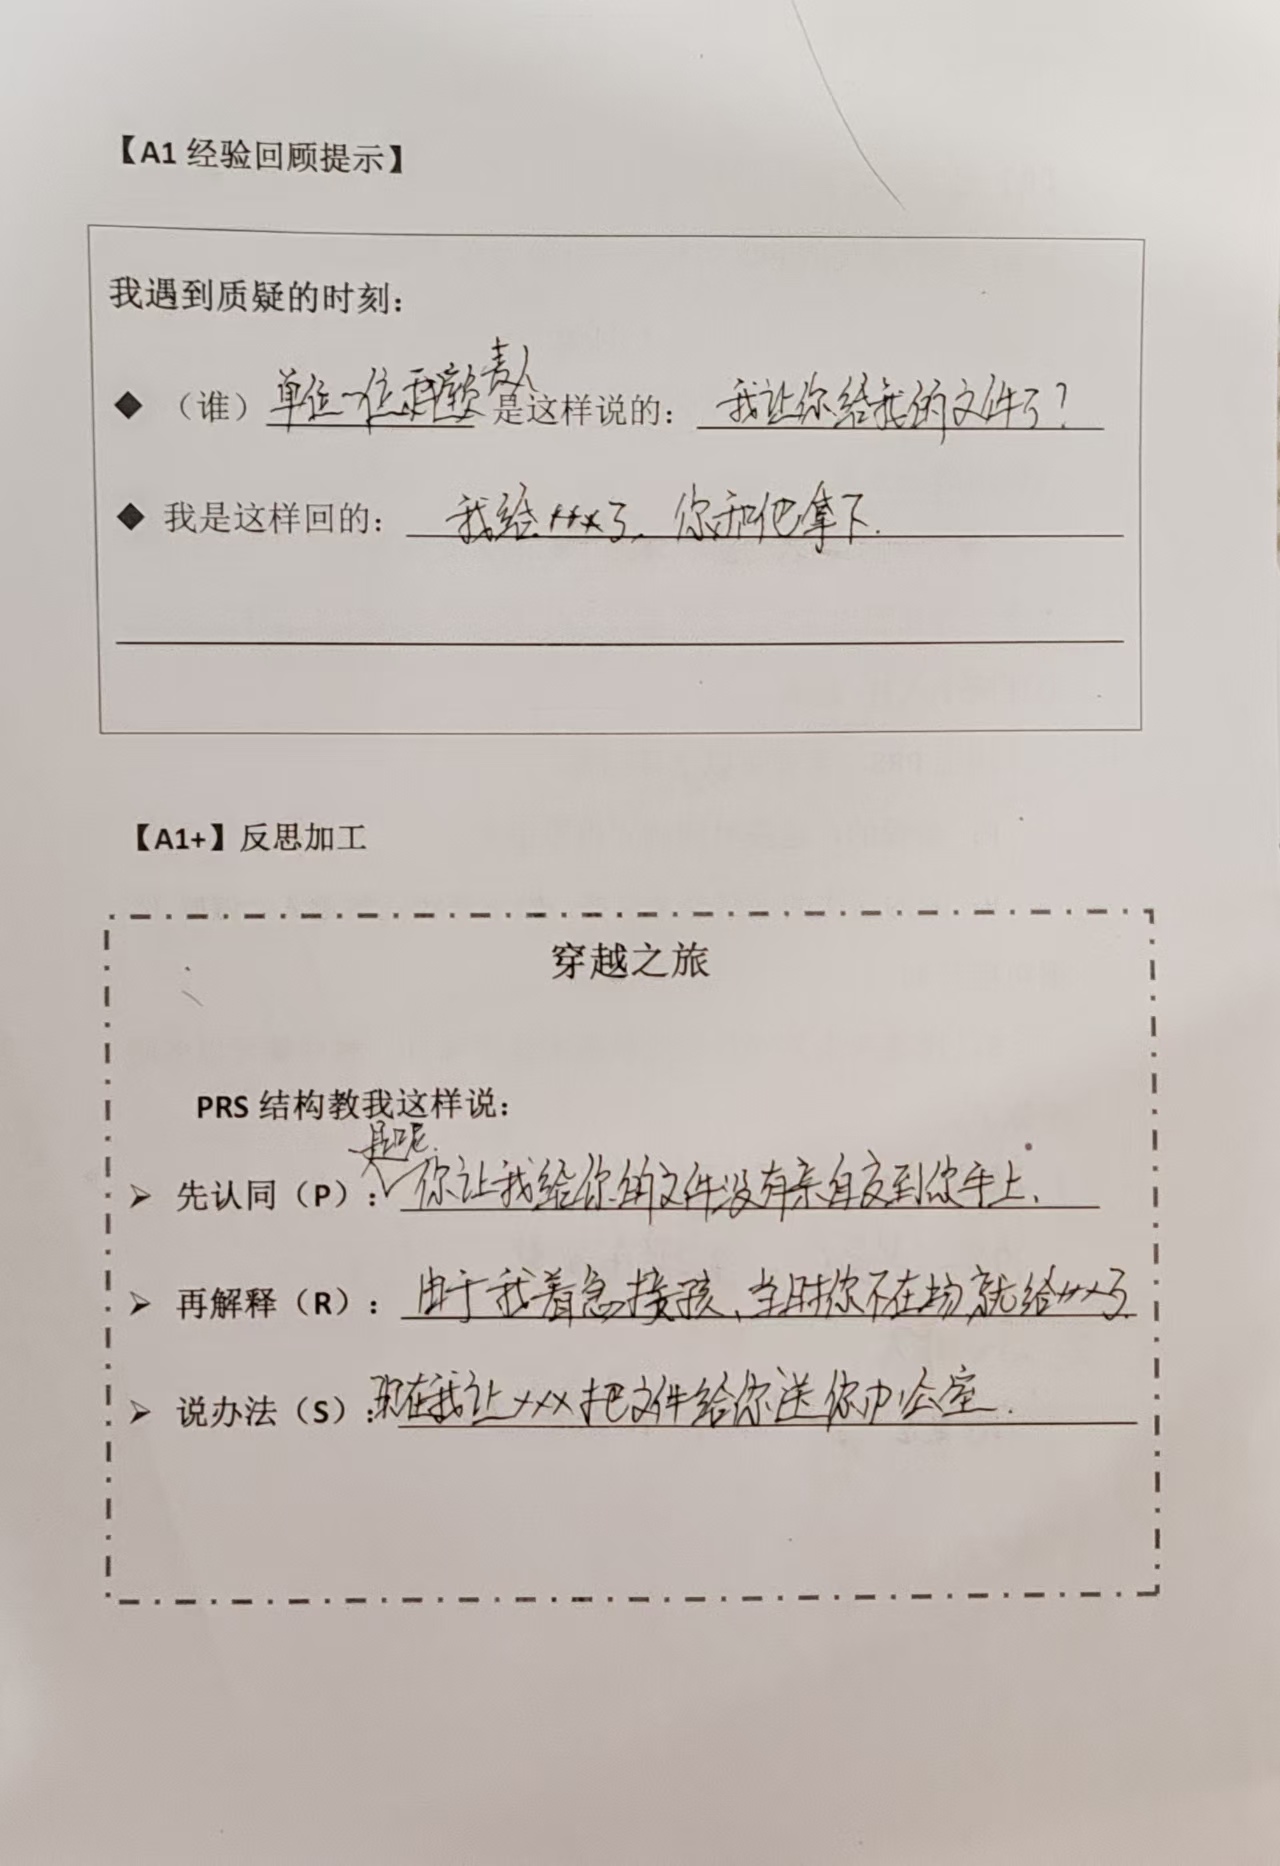 【A1 经验回顾提示】
我遇到质疑的时刻:
◆ （谁）单位一位科室负责人是这样说的: 我让你给我的文件了?
◆ 我是这样回的: 我给×××了、你和他拿下.
【A1+】反思加工
穿越之旅
PRS 结构教我这样说:
➢ 先认同（P）: 是呢.你让我给你的文件没有亲自交到你手上、
➢ 再解释（R）: 由于我着急接孩、当时你不在场,就给×××了.
➢ 说办法（S）: 现在我让×××把文件给你送你办公室.